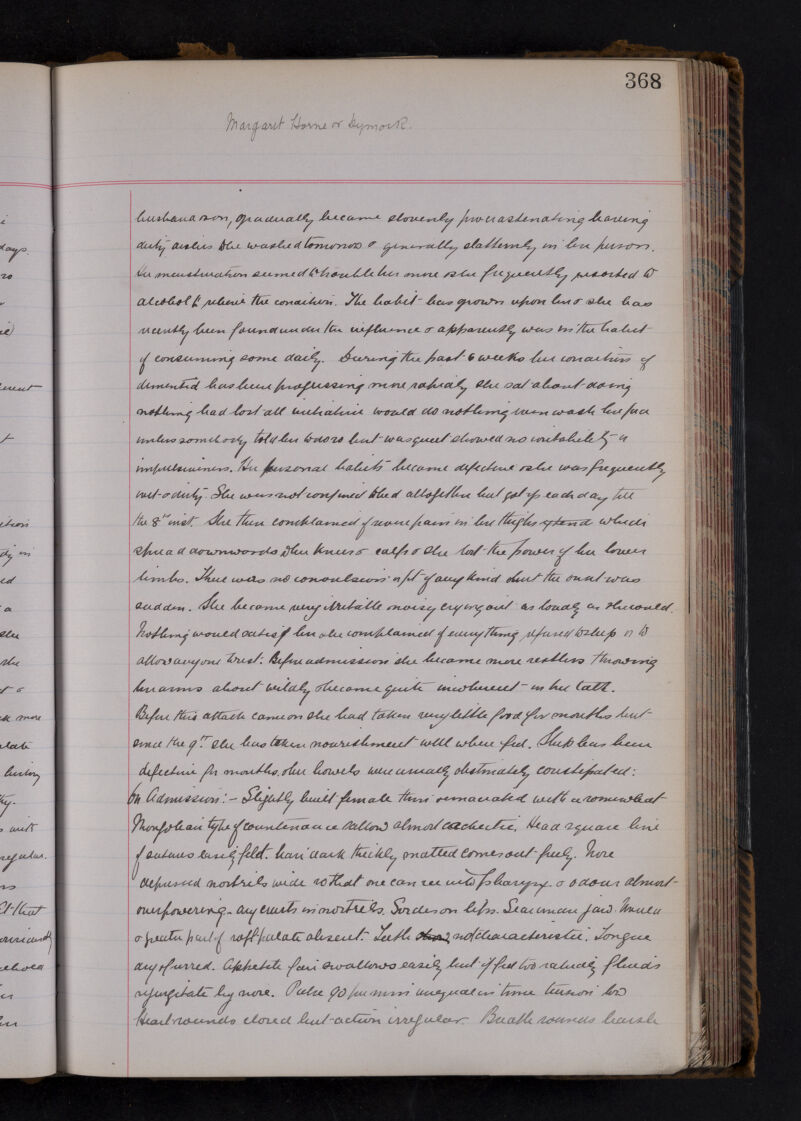 368
Margaret Horne or Dymock.
husband & son, gradually became slovenly procrastinating leaving
dirty dishes to be washed tomorrow & generally slatternly in her person.
Her menstruation seemed to trouble her more & she frequently resorted to
alcohol to relieve the condition. The habit has grown upon her & she has
recently been found under the influence & apparently was in the habit
of consuming some daily. During the past 6 weeks her condition of
dementia has been progressing more rapidly she sat about doing
nothing had lost all initiative would do nothing even wash her face
unless somebody told her to do so but was quiet showed no irritability or
impulsiveness. Her personal habits became defective & she was frequently
wet & dirty. She was not confined to bed altogether but got up each day till
the 8th inst. She then complained of severe pain in her thighs which
spread downwards to her knees & calfs & she lost the power of her lower
limbs. There was no convulsion or fit of any kind but the onset was
sudden. She became very irritable noisy crying out as loudly as she could.
Nothing would satisfy her & she complained of everything, refused to sleep or to
allow anyone to rest. Before admission she became more restless throwing
her arms about wildly & became quite incoherent in her talk.
Before this attack came on she had taken very little food for months but
since the 9th she has taken nourishment well when fed. Sleep has been
defective for months & her bowels were usually obstinately constipated:
On Admission:- Slightly built female thin & emaciated with a somewhat
Mongolian type of countenance sallow almost cachectic. Head square line
of sutures easily felt. hair dark thickly matted comes out freely. Nose
depressed nostrils wide so that one can see into pharynx & odour almost
overpowering - dry crusts in nostrils. Sordes on lips. Scar under jaw. Uvula
& greater part of soft palate absent. Teeth not characteristic. Tongue
dry & furred. Appetite fair swallows easily but if fed too rapidly fluids
regurgitate by nose. Pulse 90 per min unequal in time tension low
Heart sounds closed but action irregular. Breath sounds harsh